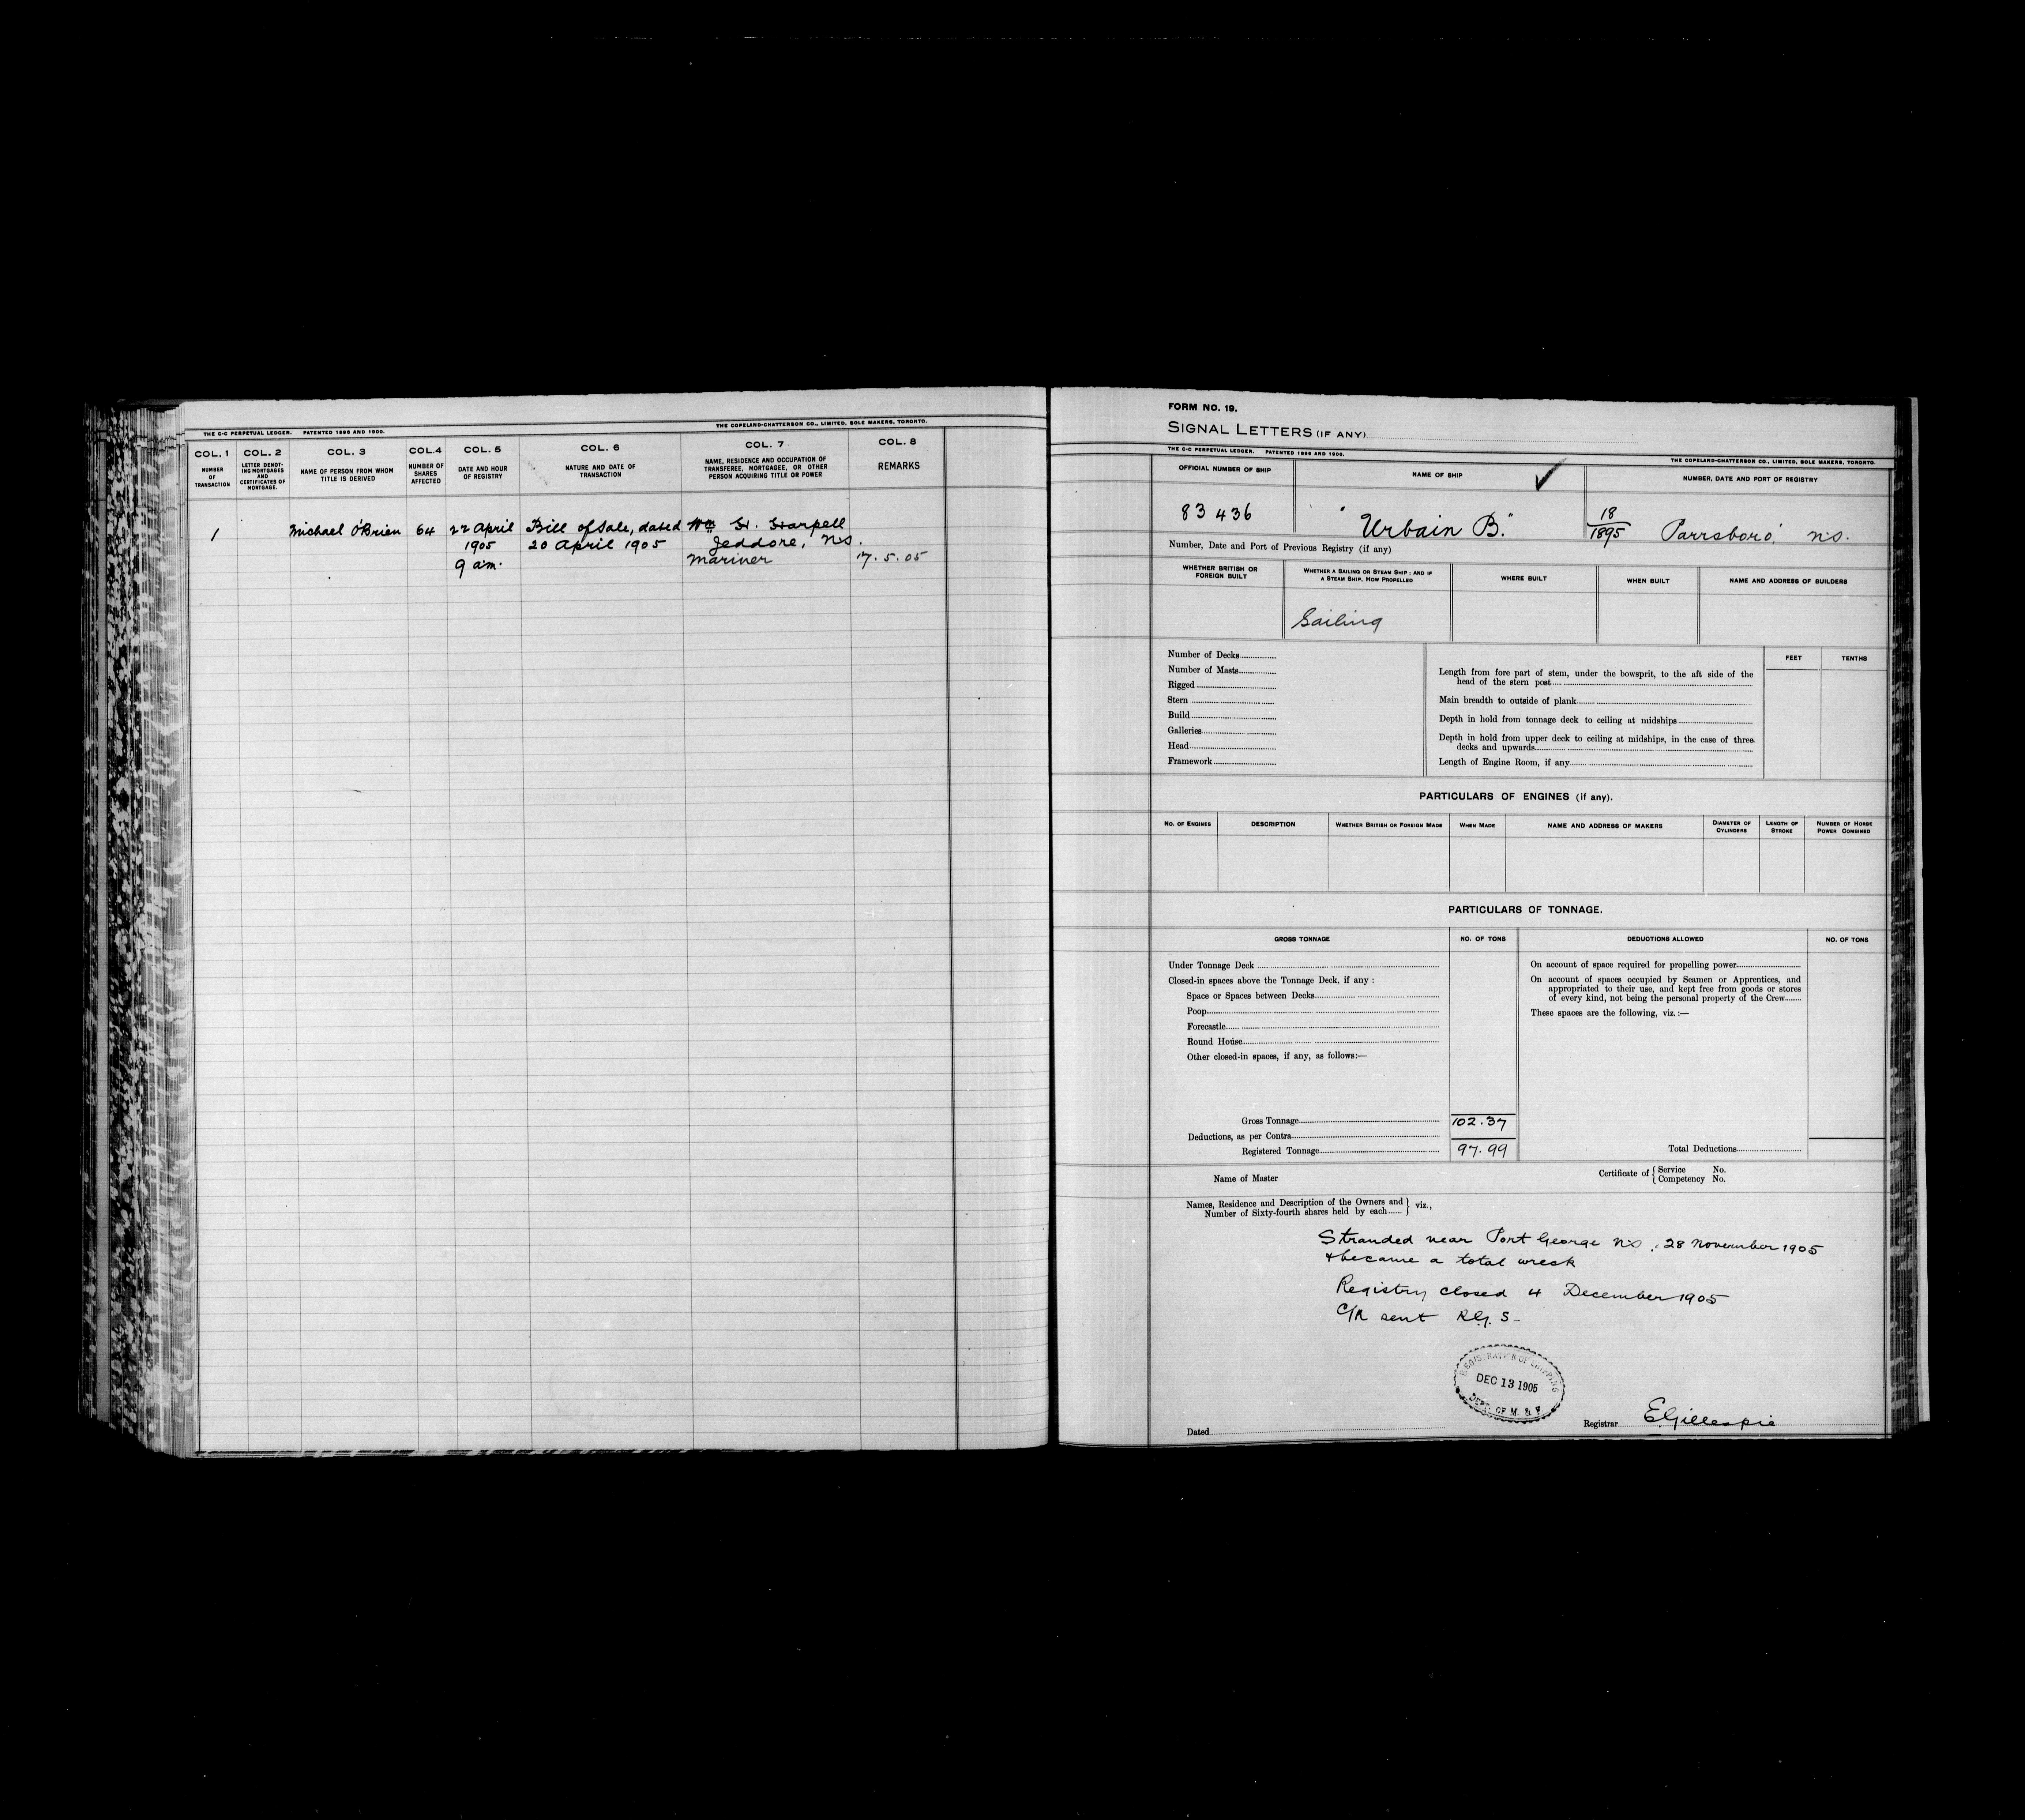 THE C-C PERPETUAL LEDGER. PATENTED 1896 AND 1900. THE COPELAND-CHATTERSON CO., LIMITED, SOLE MAKERS, TORONTO.
COL. 1 COL. 2 COL. 3 COL. 4 COL. 5 COL. 6 COL. 7 COL. 8
NUMBER OF TRANSACTION
LETTER DENOTING MORTGAGES AND CERTIFICATES OF MORTGAGE.
NAME OF PERSON FROM WHOM TITLE IS DERIVED
NUMBER OF SHARES AFFECTED
DATE AND HOUR OF REGISTRY
NATURE AND DATE OF TRANSACTION
NAME, RESIDENCE AND OCCUPATION OF TRANSFEREE, MORTGAGEE, OR OTHER PERSON ACQUIRING TITLE OR POWER
REMARKS
1 Michael O'Brien 64 22 April Bill of Sale, dated Wm H. Harpell
1905 20 April 1905 Jeddore, N.S.
9 a.m. Mariner 17.5.05
FORM NO. 19.
SIGNAL LETTERS (IF ANY)
THE C-C PERPETUAL LEDGER. PATENTED 1896 AND 1900. THE COPELAND-CHATTERSON CO., LIMITED, SOLE MAKERS, TORONTO.
OFFICIAL NUMBER OF SHIP NAME OF SHIP NUMBER, DATE AND PORT OF REGISTRY
83436 "Urbain B." 18/1895 Parrsboro' N.S.
Number, Date and Port of Previous Registry (if any)
WHETHER BRITISH OR FOREIGN BUILT
WHETHER A SAILING OR STEAM SHIP; AND IF A STEAM SHIP, HOW PROPELLED
WHERE BUILT
WHEN BUILT
NAME AND ADDRESS OF BUILDERS
Sailing
Number of Decks
Number of Masts
Rigged
Stern
Build
Galleries
Head
Framework
FEET TENTHS
Length from fore part of stem, under the bowsprit, to the aft side of the
head of the stern post
Main breadth to outside of plank
Depth in hold from tonnage deck to ceiling at midships
Depth in hold from upper deck to ceiling at midships, in the case of three
decks and upwards
Length of Engine Room, if any
PARTICULARS OF ENGINES (if any).
NO. OF ENGINES DESCRIPTION WHETHER BRITISH OR FOREIGN MADE WHEN MADE NAME AND ADDRESS OF MAKERS DIAMETER OF CYLINDERS LENGTH OF STROKE NUMBER OF HORSE POWER COMBINED
PARTICULARS OF TONNAGE.
GROSS TONNAGE NO. OF TONS DEDUCTIONS ALLOWED NO. OF TONS
Under Tonnage Deck
Closed-in spaces above the Tonnage Deck, if any :
Space or Spaces between Decks
Poop
Forecastle
Round House
Other closed-in spaces, if any, as follows:—
Gross Tonnage 102.37
Deductions, as per Contra
Registered Tonnage 97.99
On account of space required for propelling power
On account of spaces occupied by Seamen or Apprentices, and
appropriated to their use, and kept free from goods or stores
of every kind, not being the personal property of the Crew
These spaces are the following, viz.:—
Total Deductions
Name of Master
Certificate of { Service No.
Competency No.
Names, Residence and Description of the Owners and
Number of Sixty-fourth shares held by each } viz.,
Stranded near Port George N.S. 28 November 1905
& became a total wreck
Registry closed 4 December 1905
C/R sent R.G.S
REGISTRATION OF SHIPPING
DEC 13 1905
DEPT. OF M. & F.
Dated
Registrar EGillespie